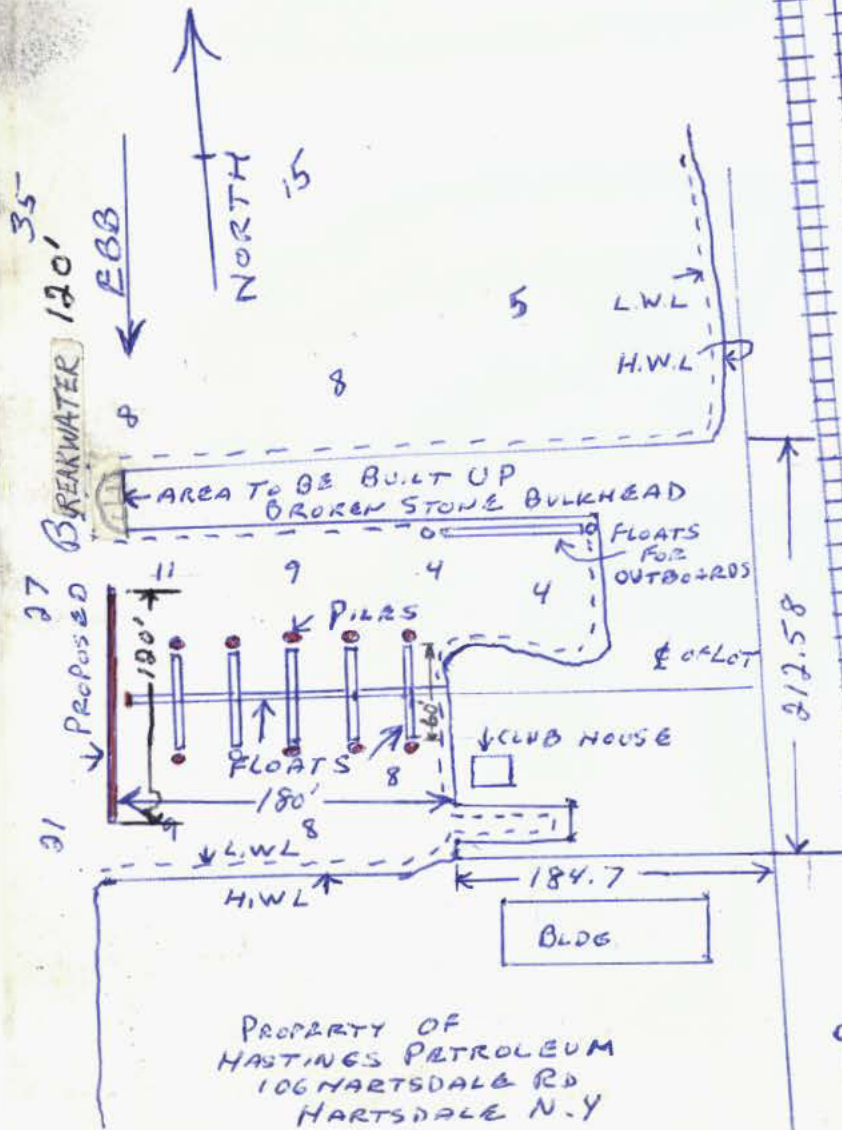 NORTH
EBB
15
35
5
L.W.L
H.W.L
8
8
BREAKWATER 120'
AREA TO BE BUILT UP
BROKEN STONE BULKHEAD
FLOATS
FOR
OUTBOARDS
11
9
4
4
27
PROPOSED
120'
PILES
₵ OF LOT
212.58
60'
CLUB HOUSE
FLOATS
8
180'
21
9
8
L.WL
H.WL
184.7
BLDG
PROPERTY OF
HASTINGS PETROLEUM
106 HARTSDALE RD
HARTSDALE N.Y